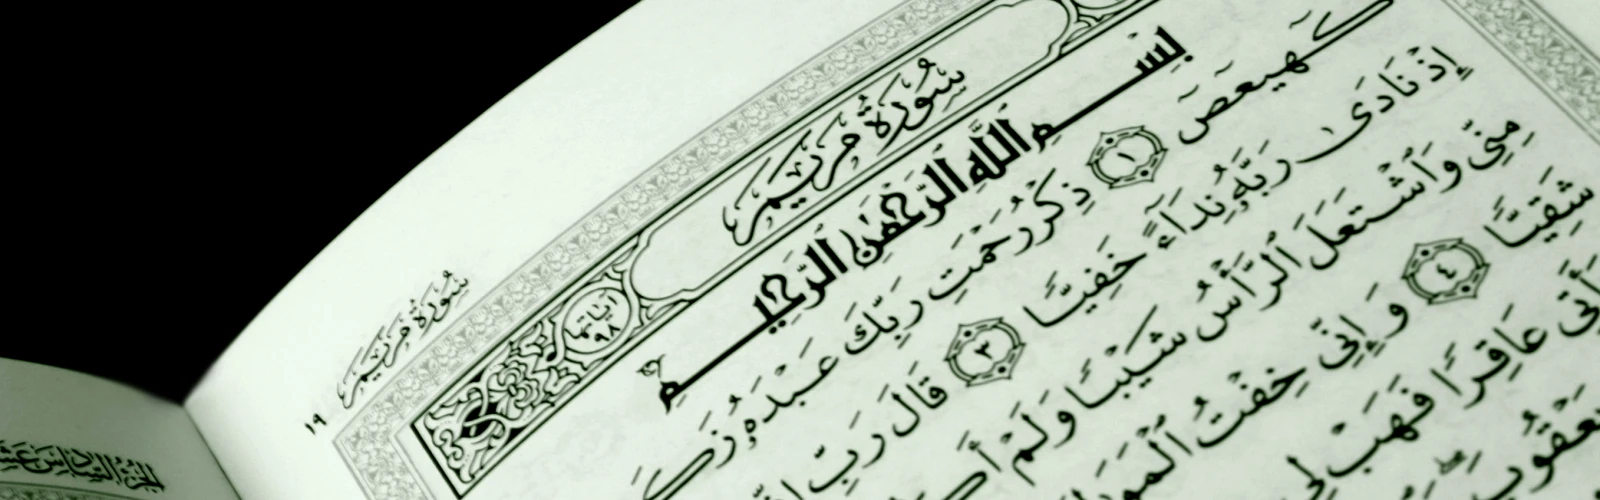 سُورَةُ مَرْيَمَ
١٩
آيَاتُهَا
٩٨
سُورَةُ مَرْيَمَ
بِسْمِ اللَّهِ الرَّحْمَٰنِ الرَّحِيمِ
كٓهيعٓصٓ ١ ذِكْرُ رَحْمَتِ رَبِّكَ عَبْدَهُۥ زَكَ
إِذْ نَادَىٰ رَبَّهُۥ نِدَآءً خَفِيًّا ٣ قَالَ رَبِّ
مِنِّى وَٱشْتَعَلَ ٱلرَّأْسُ شَيْبًا وَلَمْ أَكُ
شَقِيًّا ٤ وَإِنِّى خِفْتُ ٱلْمَوَ
عَاقِرًا فَهَبْ لِى
يَعْقُوبَ
الجزء السادس عش